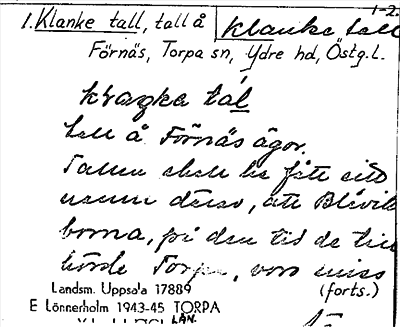 1-2.
1. Klanke tall, tall å Klanke tall
Förnäs, Torpa sn, Ydre hd, Östg. l.
tall å Förnäs ägor.
Tallen skall ha fått sitt
namn därav, att Blåvik
borna, på den tid de till
hörde Torpa, voro miss
Landsm. Uppsala 17889 (forts.)
E Lönnerholm 1943-45 TORPA
LÄN.